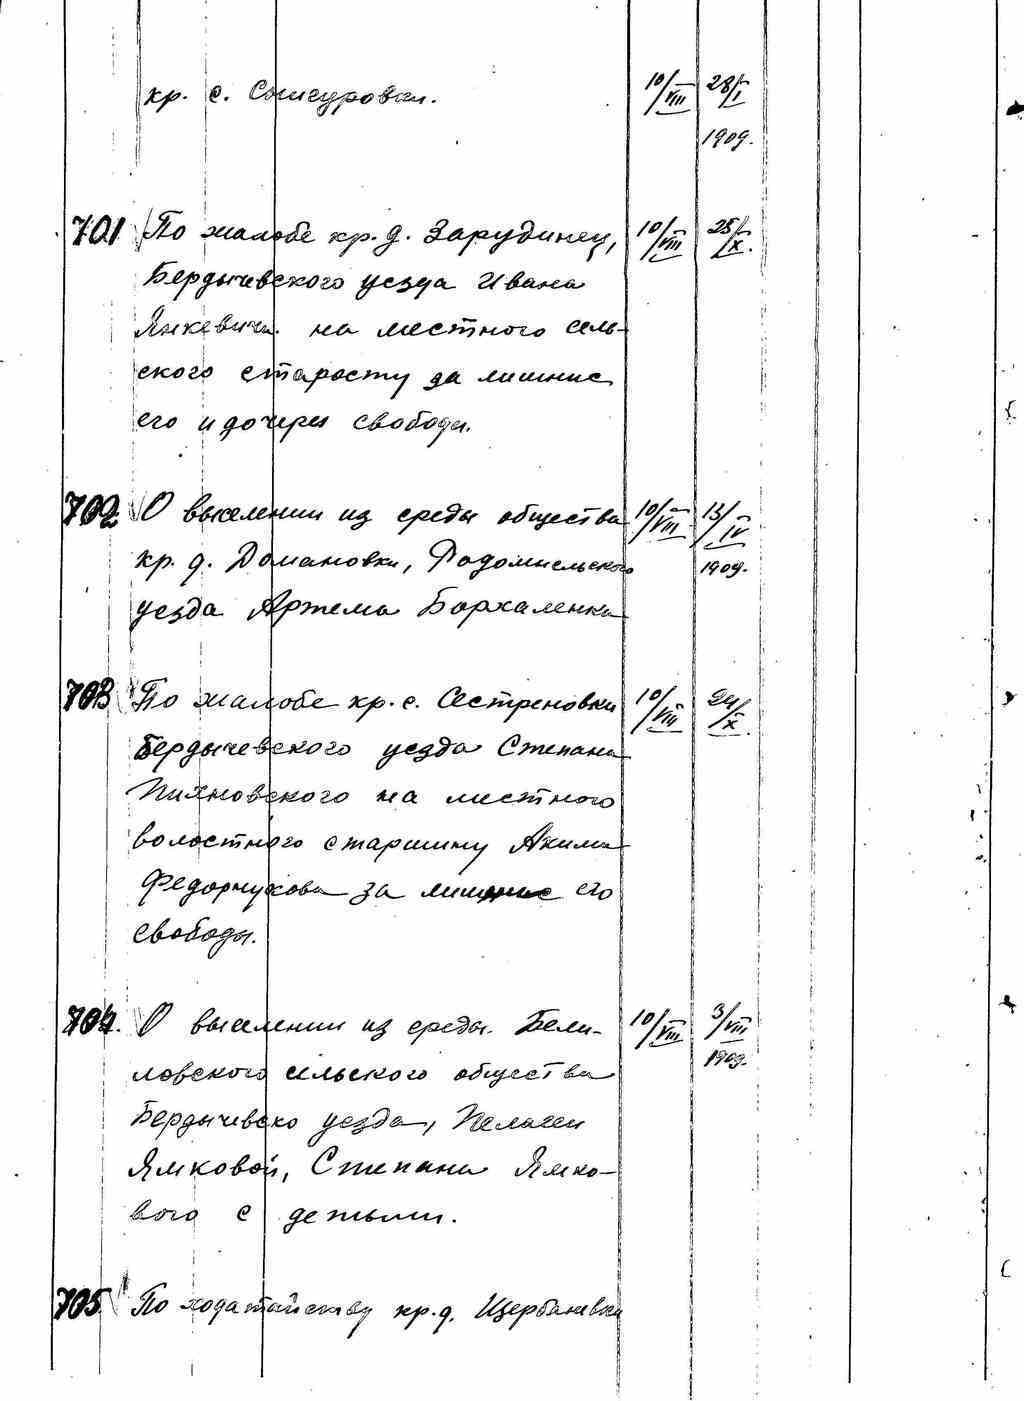 кр. с. Сошгуровки. 10/VIII 28/I
1909.
701 По жалобе кр. д. Зарудинец, 10/VIII 28/X.
Бердычевского уезда Ивана
Янкевича на местного сель-
ского старосту за лишние
его и дочери свободы.
702 О выселении из среды общества 10/VIII 13/IV
кр. д. Домановки, Радомысльского 1909.
уезда Артема Бархаленка
703 По жалобе кр. с. Сестреновки 10/VIII 24/X.
Бердычевского уезда Степана
на местного
волостного старшину Акима
Федорчукова за лишние его
свободы.
704. О выселении из среды Бели- 10/VIII 3/VIII
ловского сельского общества 1909.
Бердычевско уезда, Пелагеи
Ямковой, Степана Ямко-
вого с детьми.
705 По ходатайству кр. д. Щербаневки